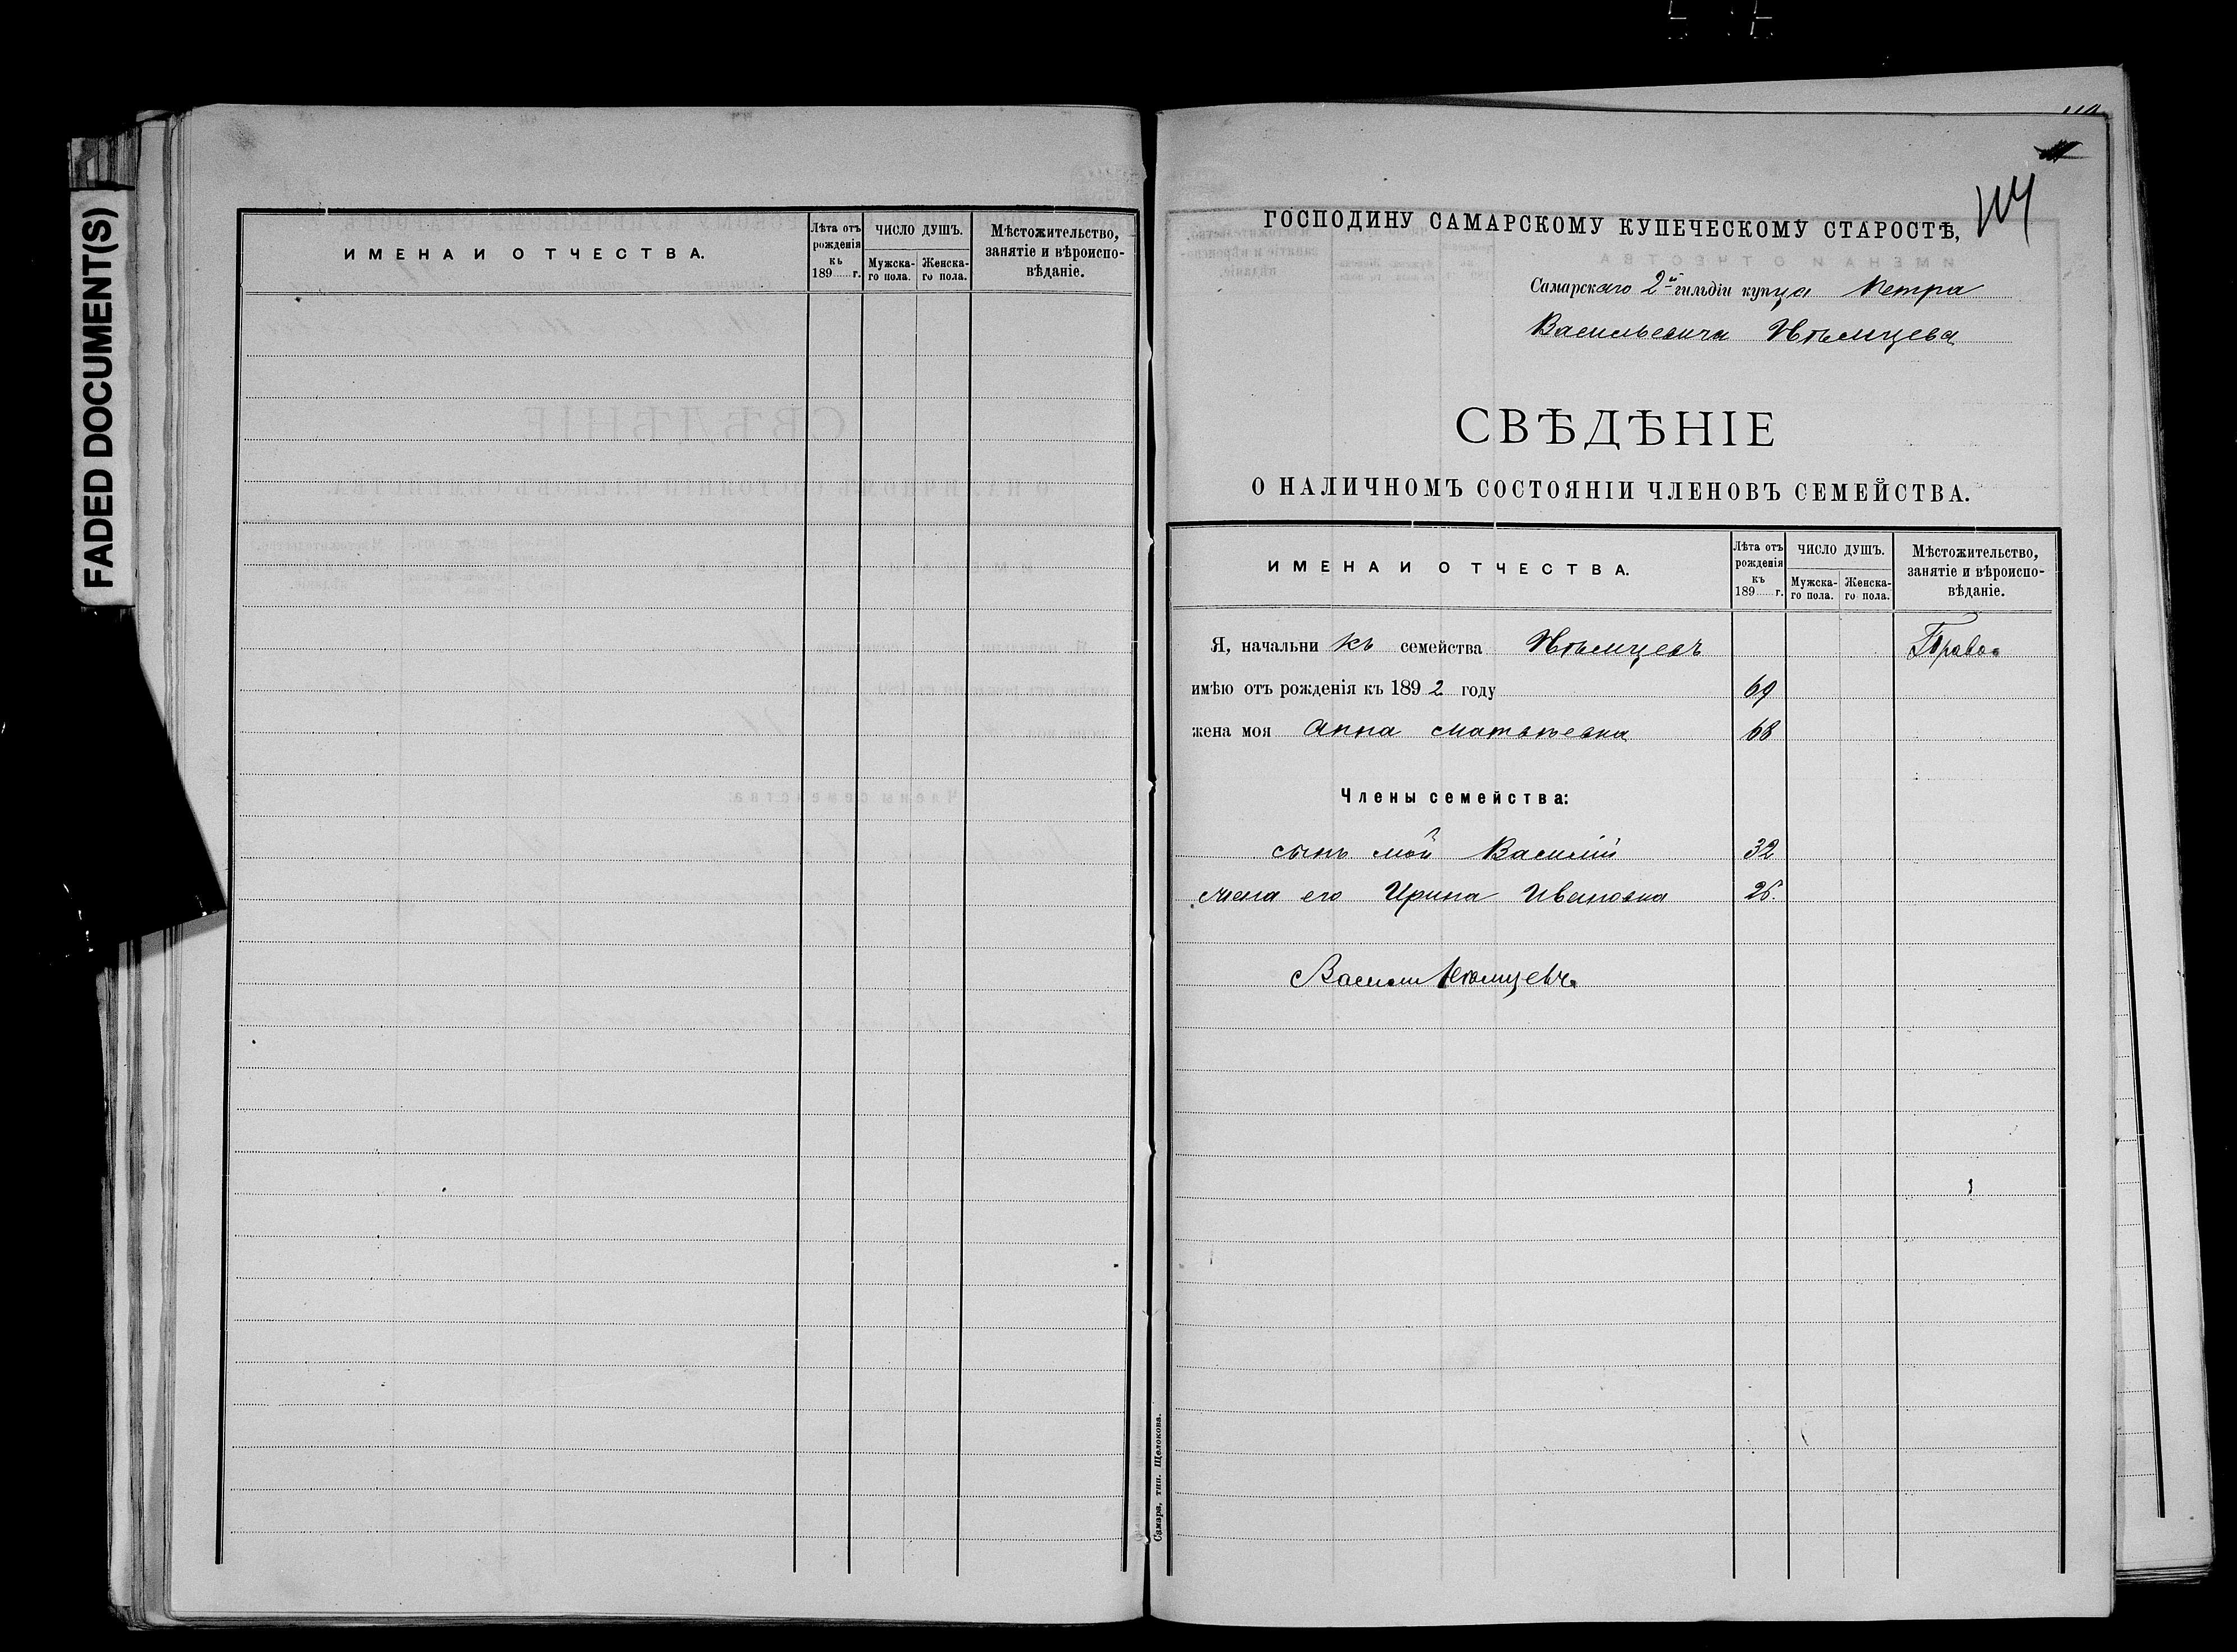 FADED DOCUMENT(S)
ИМЕНА И ОТЧЕСТВА.
Лѣта отъ рожденія къ 189 г.
ЧИСЛО ДУШЪ.
Мужска-го пола.
Женска-го пола.
Мѣстожительство, занятіе и вѣроиспо-вѣданіе.
114
ГОСПОДИНУ САМАРСКОМУ КУПЕЧЕСКОМУ СТАРОСТѢ,
Самарскаго 2й гильдіи купца Петра
Васильевича Нѣмцева
СВѢДѢНІЕ
О НАЛИЧНОМЪ СОСТОЯНІИ ЧЛЕНОВЪ СЕМЕЙСТВА.
ИМЕНА И ОТЧЕСТВА.
Лѣта отъ рожденія къ 189 г.
ЧИСЛО ДУШЪ.
Мужска-го пола.
Женска-го пола.
Мѣстожительство, занятіе и вѣроиспо-вѣданіе.
Я, начальникъ семейства Нѣмцевъ Право
имѣю отъ рожденія къ 1892 году 69
жена моя Анна Матвѣевна 68
Члены семейства:
сынъ мой Василій 32
жена его Ирина Ивановна 25
Василий Нѣмцевъ
Самара, тип. Щелокова.